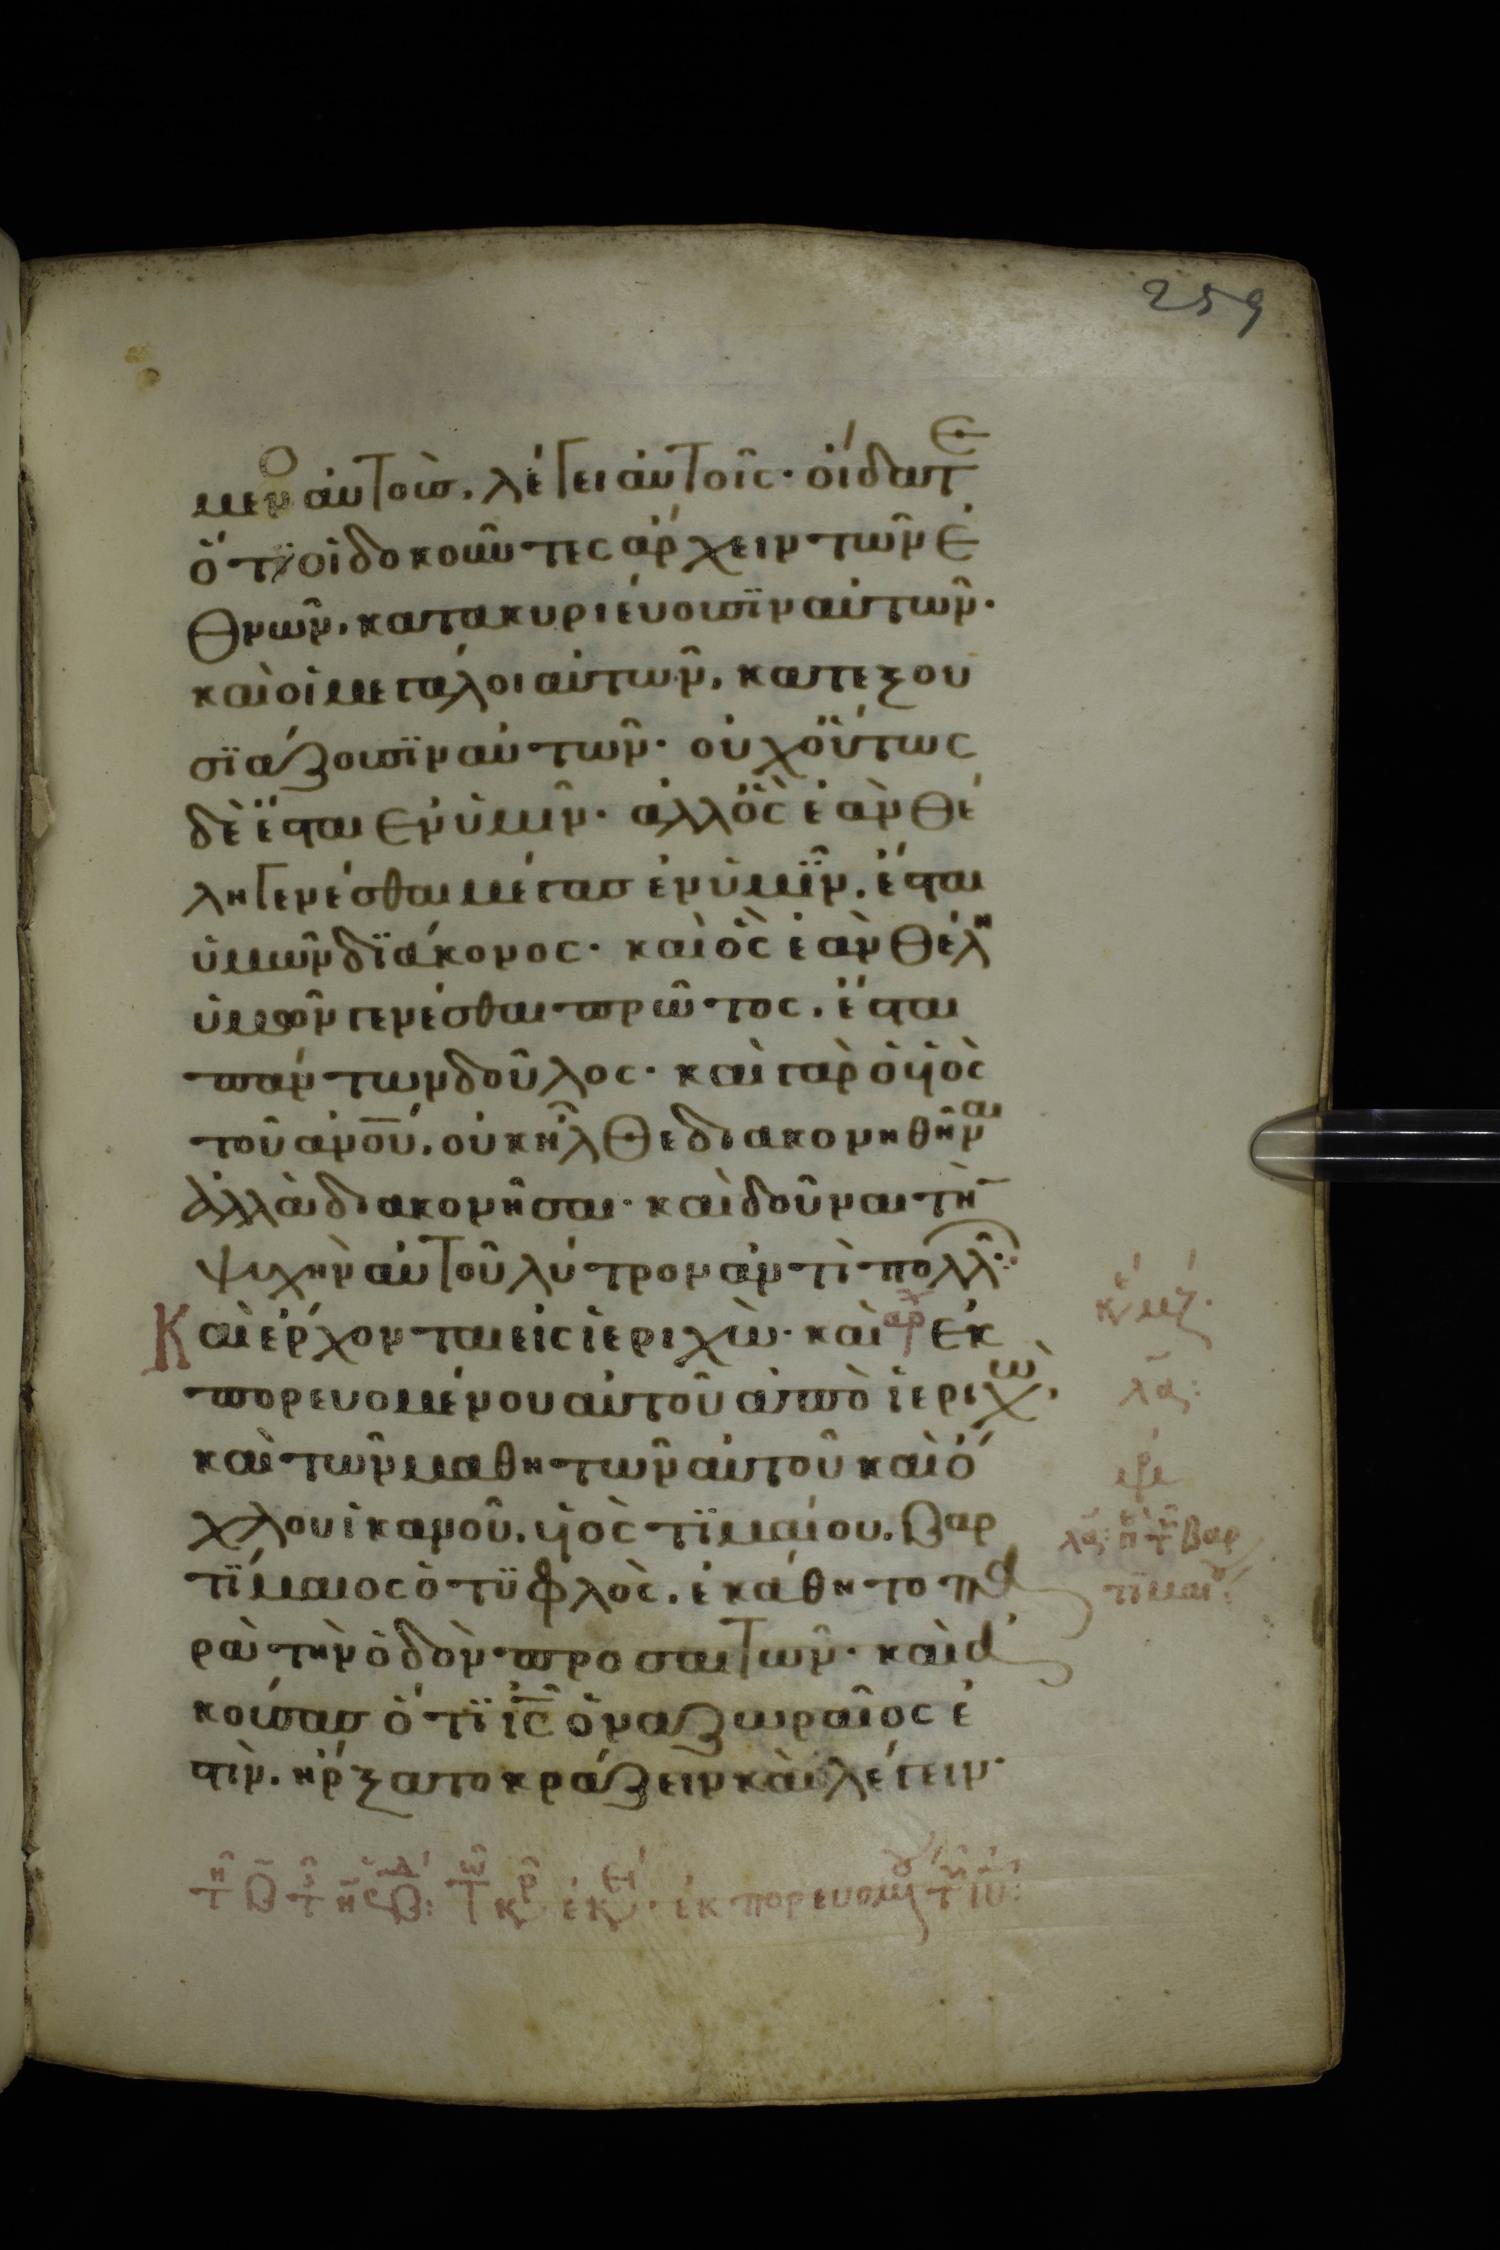 259
μενο αὐτοὺσ. λέγει αὐτοῖς· οἴδατε
ὅτϊ οἱ δοκοῦντες ἄρχειν τῶν ἐ
θνῶν, κατακυριέυουσϊν αὐτῶν·
καὶ οἱ μεγάλοι αὐτῶν, κατεξου
σϊάζουσϊν αὐτῶν· οὐχ οὕτως
δὲ ἔσται ἐν ὑμῖν· ἀλλ ὃς ἐὰν θέ
λη γενέσθαι μέγασ ἐν ὑμῖν, ἔσται
ὑμῶν δϊάκονος· καὶ ὃς ἐὰν θέλη
ὑμῶν γενέσθαι πρῶτος, ἔσται
πάντων δοῦλος· καὶ γὰρ ὁ υἱὸς
τοῦ ἀνου, οὐκ ἦλθε διακονηθῆναι
ἀλλὰ διακονῆσαι· καὶ δοῦναι τὴν
ψυχὴν αὐτοῦ λύτρον ἀντὶ πολλῶν:
Καὶ ἔρχονται εἰς ἱεριχὼ· καὶ αρχ ἐκ
πορευομένου αὐτοῦ ἀπὸ ἱεριχὼ,
καὶ τῶν μαθητῶν αὐτοῦ καὶ ὄ
χλου ἱκανοῦ, υἱὸς τϊμαίου, βαρ
τϊμαιος ὁ τϋφλὸς, ἐκάθητο πα
ρὰ τὴν ὁδὸν προσαιτῶν· καὶ ἀ
κούσασ ὅτϊ ις ὁ ναζωραῖος ἐ
στὶν, ἤρξατο κράζειν καὶ λέγειν·
βαρ
τϊμαιου: